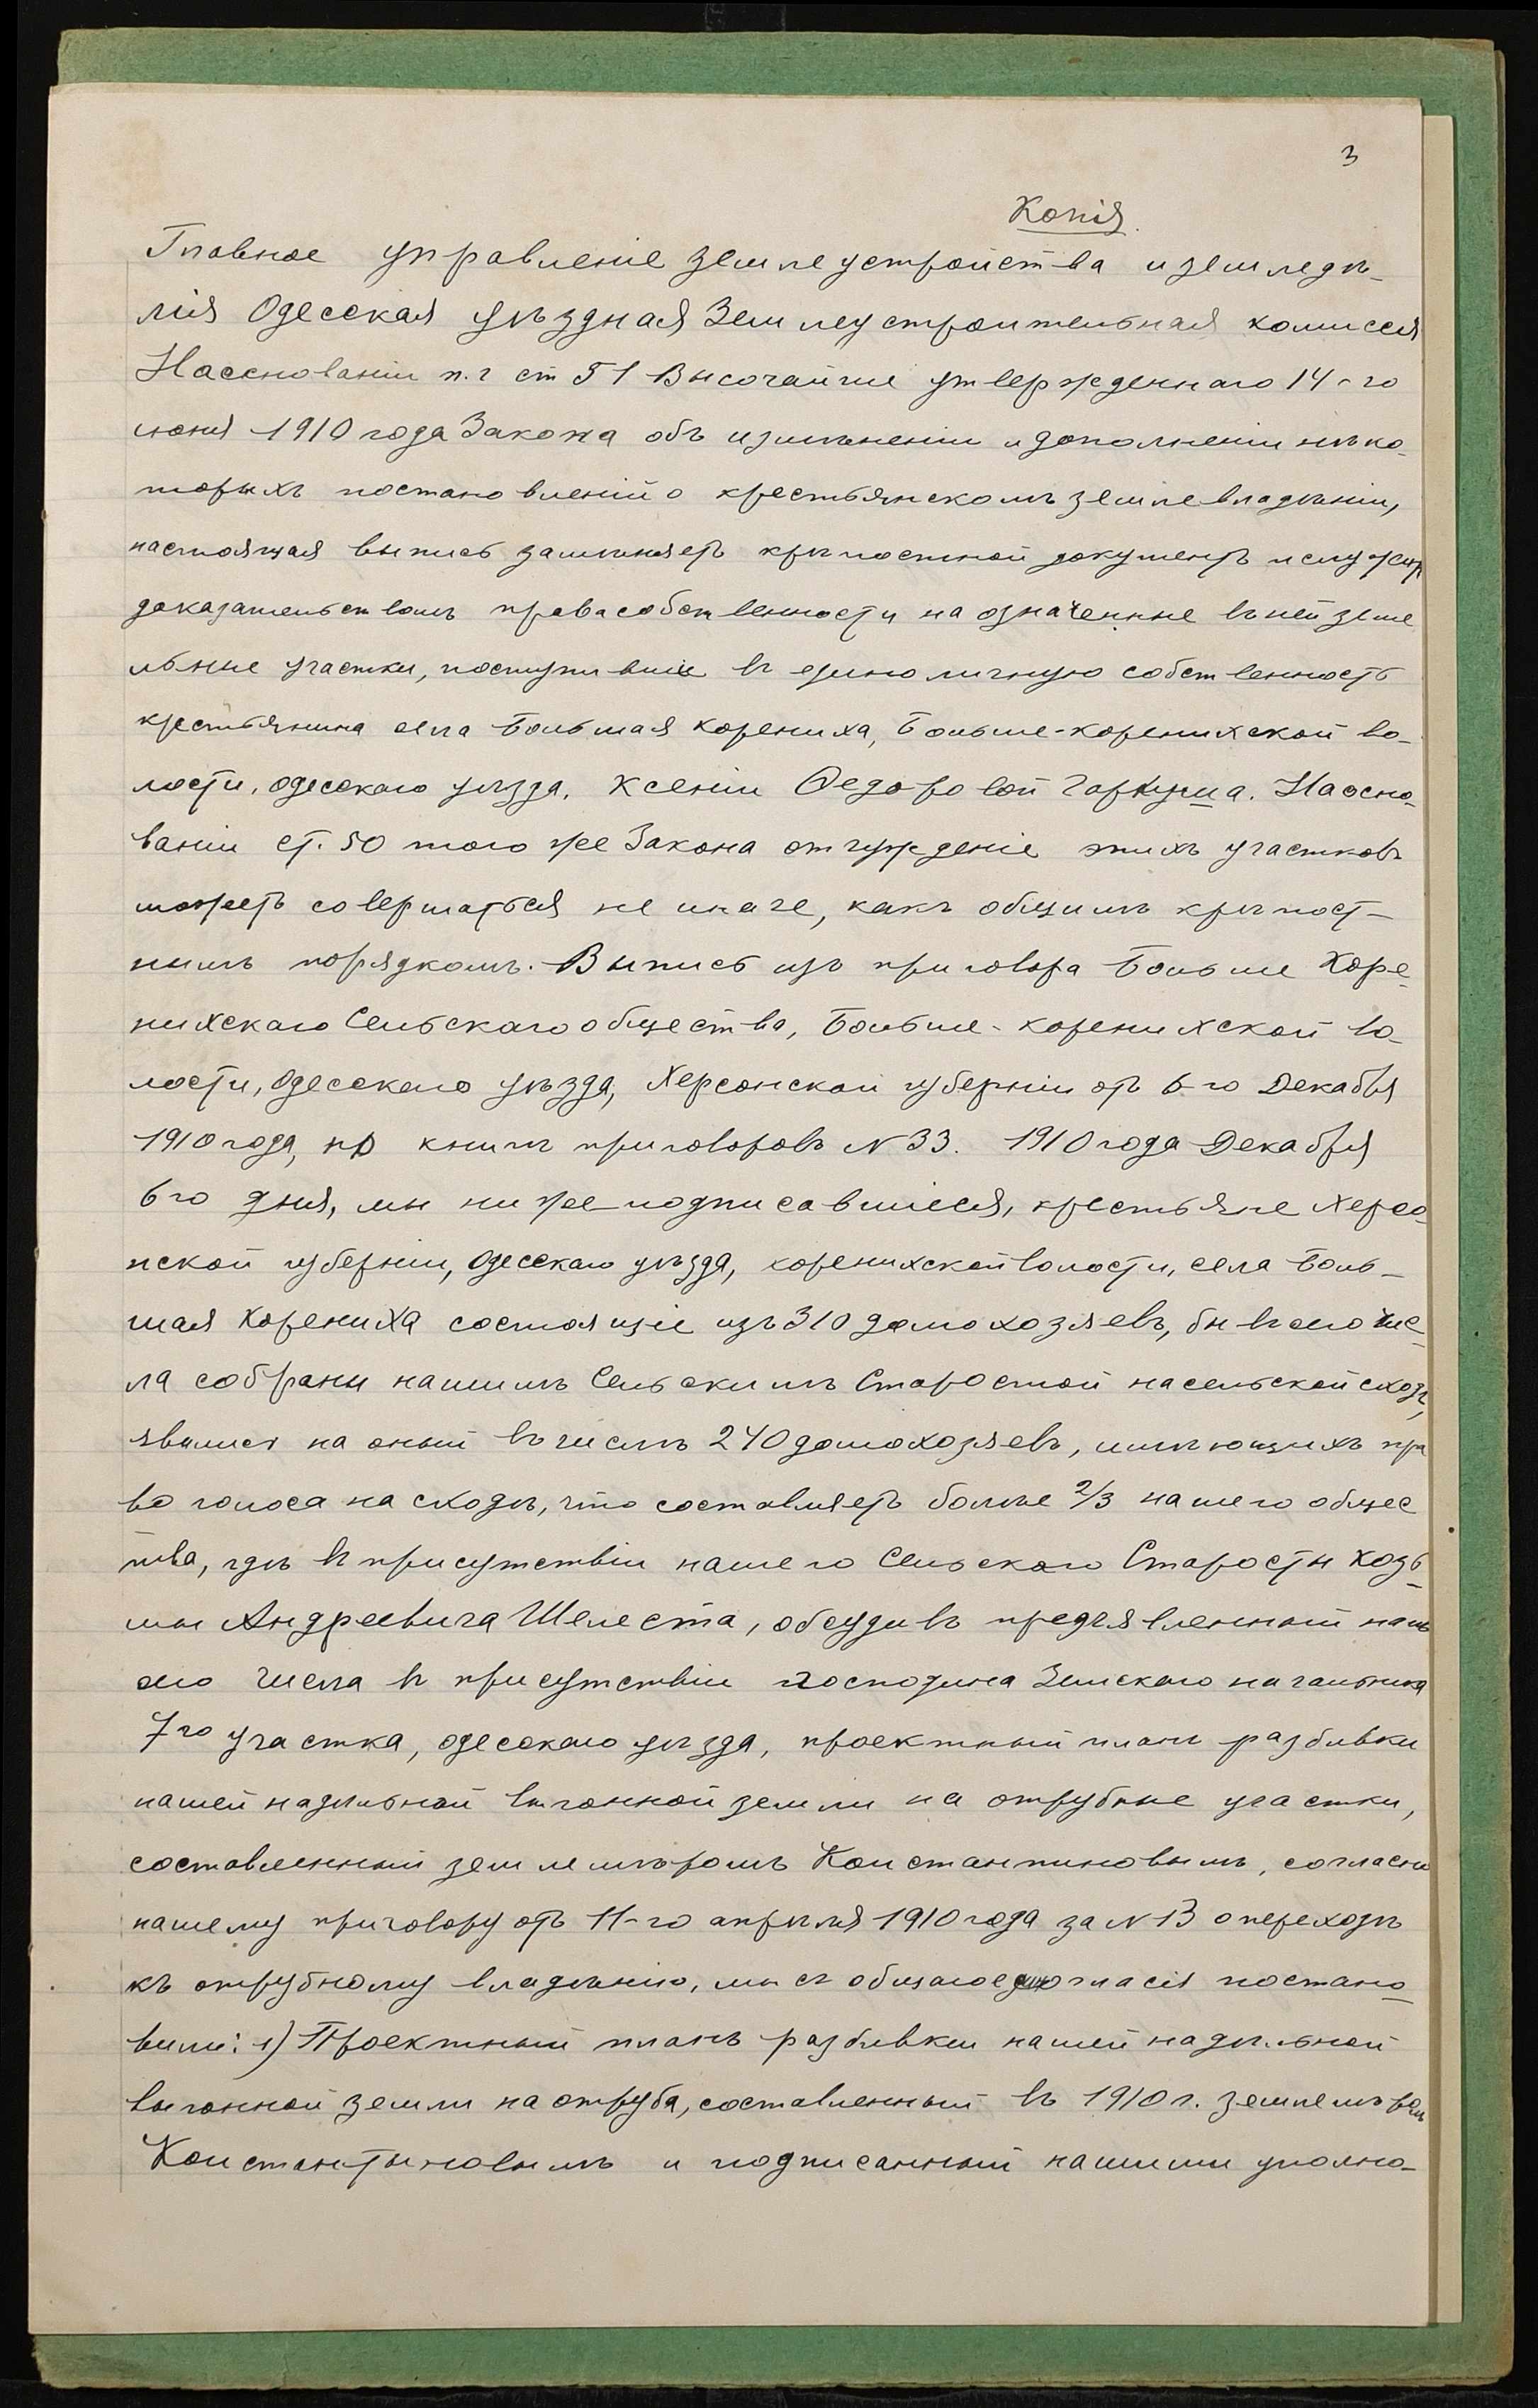 3
Копія.
Главное управленіе землеустройства и земледѣ-
лія Одесская уѣздная Землеустроительная комиссія
На основаніи п. г ст 51 Высочайше утвержденнаго 14-го
июня 1910 года Закона объ измѣненіи и дополненіи нѣко-
торыхъ постановленій о крестьянскомъ землевладѣніи,
настоящая выпись замѣняетъ крѣпостной документъ и служитъ
доказательствомъ права собственности на означенные въ ней земе
льные участки, поступившіе въ единоличную собственность
крестьянина села Большая Корениха, Больше-Коренихской во-
лости, Одесскаго уѣзда, Ксеніи Ѳедоровой Гаркуша. На осно-
ваніи ст. 50 того же Закона отчужденіе этихъ участковъ
можетъ совершаться не иначе, какъ общимъ крѣпост-
нымъ порядкомъ. Выпись изъ приговора Больше Коре-
нихскаго Сельскаго общества, Больше-Коренихской во-
лости, Одесскаго уѣзда, Херсонской губерніи отъ 6-го Декабря
1910 года, по книгѣ приговоровъ N 33. 1910 года Декабря
6го дня, мы ниже-подписавшіеся, крестьяне Херсо-
нской губерніи, Одесскаго уѣзда, Коренихской волости, села Боль-
шая Корениха состоящіе изъ 310 домохозяевъ, бывъ сего чис-
ла собраны нашимъ Сельскимъ Старостой на сельской сходъ,
явились на оный въ числѣ 240 домохозяевъ, имѣющихъ пра
во голоса на сходѣ, что составляетъ болѣе 2/3 нашего общес
тва, гдѣ въ присутствіи нашего Сельскаго Старосты Козь-
мы Андреевича Шелеста, обсудивъ предъявленный намъ
сего числа въ присутствіи господина Земскаго начальника
7го участка, Одесскаго уѣзда, проектный планъ разбивки
нашей надѣльной выгонной земли на отрубные участки,
составленный землемѣромъ Константиновымъ, согласно
нашему приговору отъ 11-го апрѣля 1910 года за N 13 о переходѣ
къ отрубному владѣнію, мы съ общаго согласія постано-
вили: 1) Проектный планъ разбивки нашей надѣльной
выгонной земли на отруба, составленный въ 1910 г. землемѣромъ
Константиновымъ и подписанный нашими уполно-